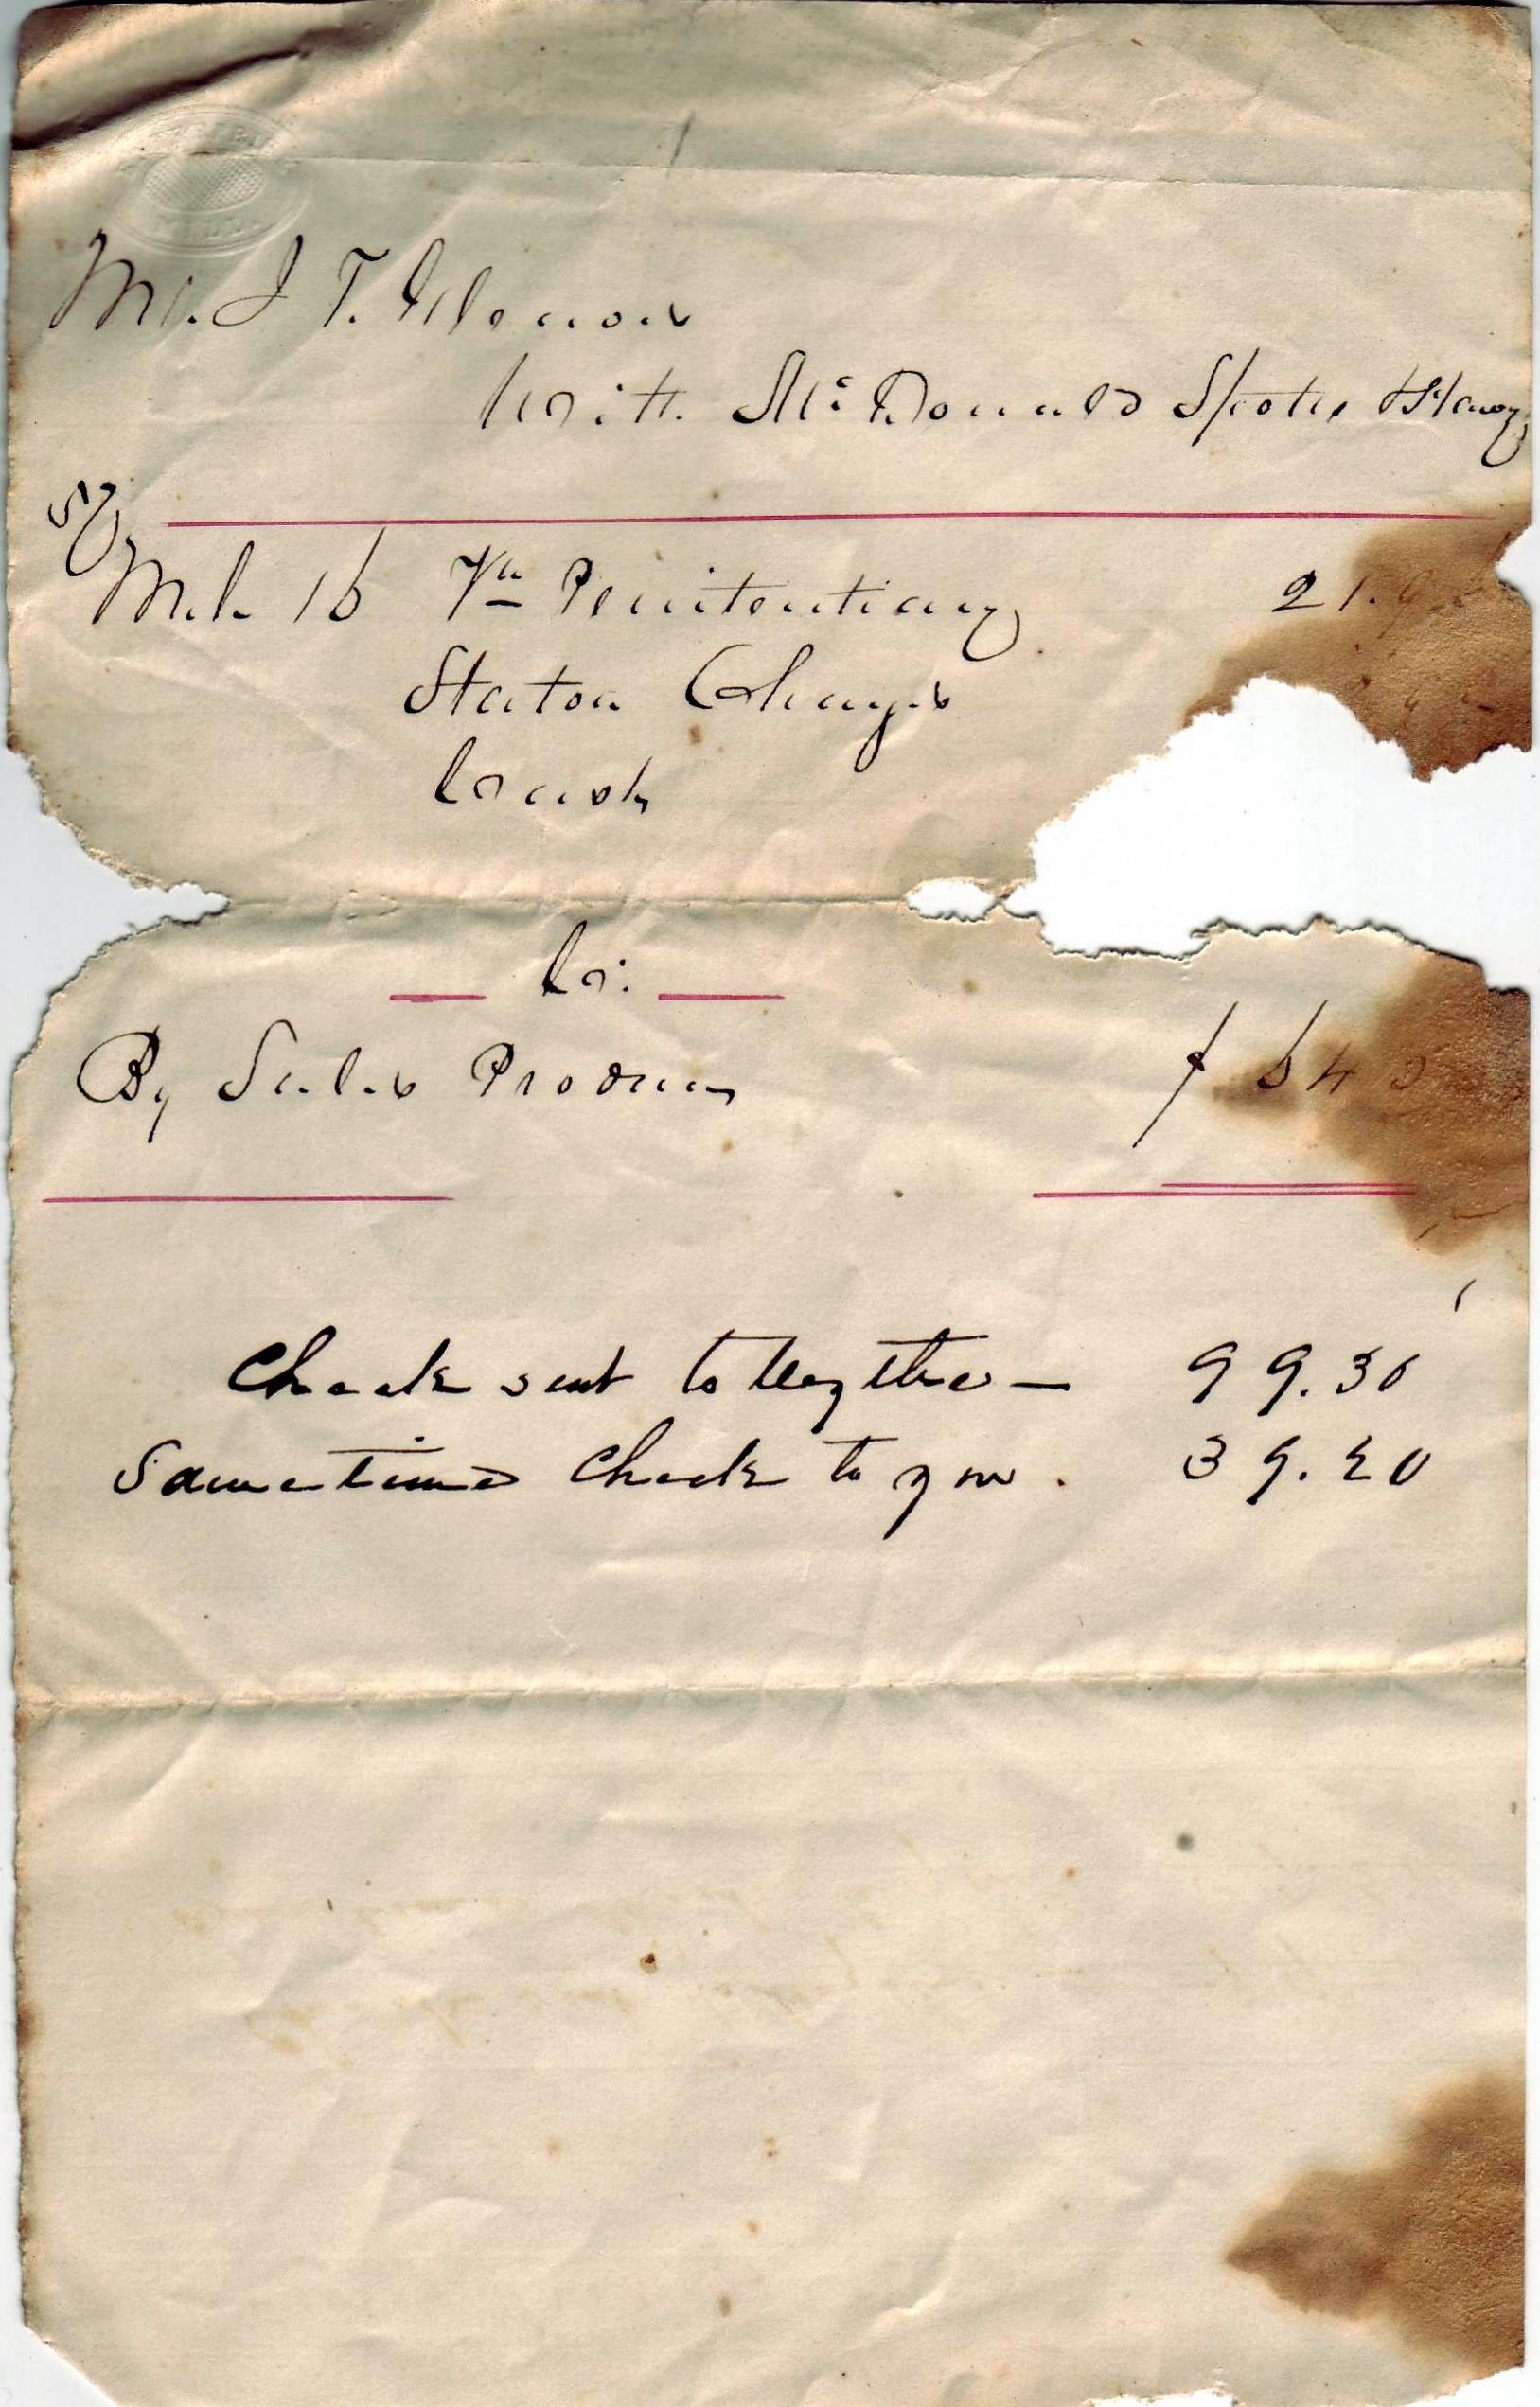 Mr. J T.
With McDonald Shotes & Stacy
Mch 16 Va Penitentiary 21.9
Staton Charges
Cash
Cr.
By Sales Produce $ 64
Check sent to Legthe — 99.30
Same time Check to you. 39.20